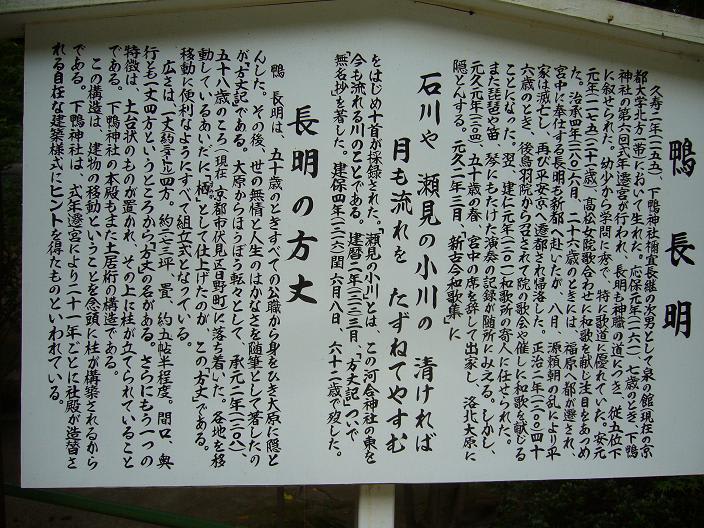 鴨 長明
久寿二年(一一五五)、下鴨神社禰宜長継の次男として泉の館現在の京
都大学北方一帯において生れた。応保元年(一一六一)七歳のとき、下鴨
神社の第六回式年遷宮が行われ、長明も神職の道につき、従五位下
に叙せられた。幼少から学問に秀で、特に歌道に優れていた。安元
元年(一一七五)二十一歳、高松女院歌合わせに和歌を献じ注目をあつめ
た。治承四年(一一八〇)六月、二十六歳のときには、福原へ都が遷され、
宮中に奉仕する長明も新都へ赴いたが、八月、源頼朝の乱により平
家は滅亡し、再び平安京へ遷都され帰洛した。正治二年(一二〇〇)四十
六歳のとき、後鳥羽院から召されて院の歌会や催しに和歌を献じる
ことになった。翌、建仁元年(一二〇一)和歌所の寄人に任せられた。
また琵琶や笛、琴にもたけた演奏の記録が随所にみえる。しかし、
元久元年(一二〇四)、五十歳の春、宮中の席を辞して出家し、洛北大原に
隠とんする。元久二年三月、「新古今和歌集」に
石川や 瀬見の小川の 清ければ
月も流れを たずねてやすむ
をはじめ十首が採録された。「瀬見の小川」とは、この河合神社の東を
今も流れる川のことである。建暦二年(一二一二)三月、「方丈記」ついで
「無名抄」を著した。建保四年(一二一六)閏六月八日、六十二歳で歿した。
長明の方丈
鴨 長明は、五十歳のときすべての公職から身をひき大原に隠と
んした。その後、世の無情と人生のはかなさを随筆として著したの
が「方丈記」である。大原からほうぼう転々として、承元二年(一二〇八)、
五十八歳のころ(現在 京都市伏見区日野町)に落ち着いた。各地を移
動しているあいだに、「栖」として仕上げたのが この「方丈」である。
移動に便利なようにすべて組立式となっている。
広さは、一丈(約三米)四方、約二・七三坪、畳、約五帖半程度。間口、奥
行とも一丈四方というところから「方丈」の名がある。さらにもう一つの
特徴は、土台状のものが置かれ、その上に柱が立てられていること
である。下鴨神社の本殿もまた土居桁の構造である。
この構造は、建物の移動ということを念頭に柱が構築されるから
である。下鴨神社は、式年遷宮により二十一年ごとに社殿が造替さ
れる自在な建築様式にヒントを得たものといわれている。